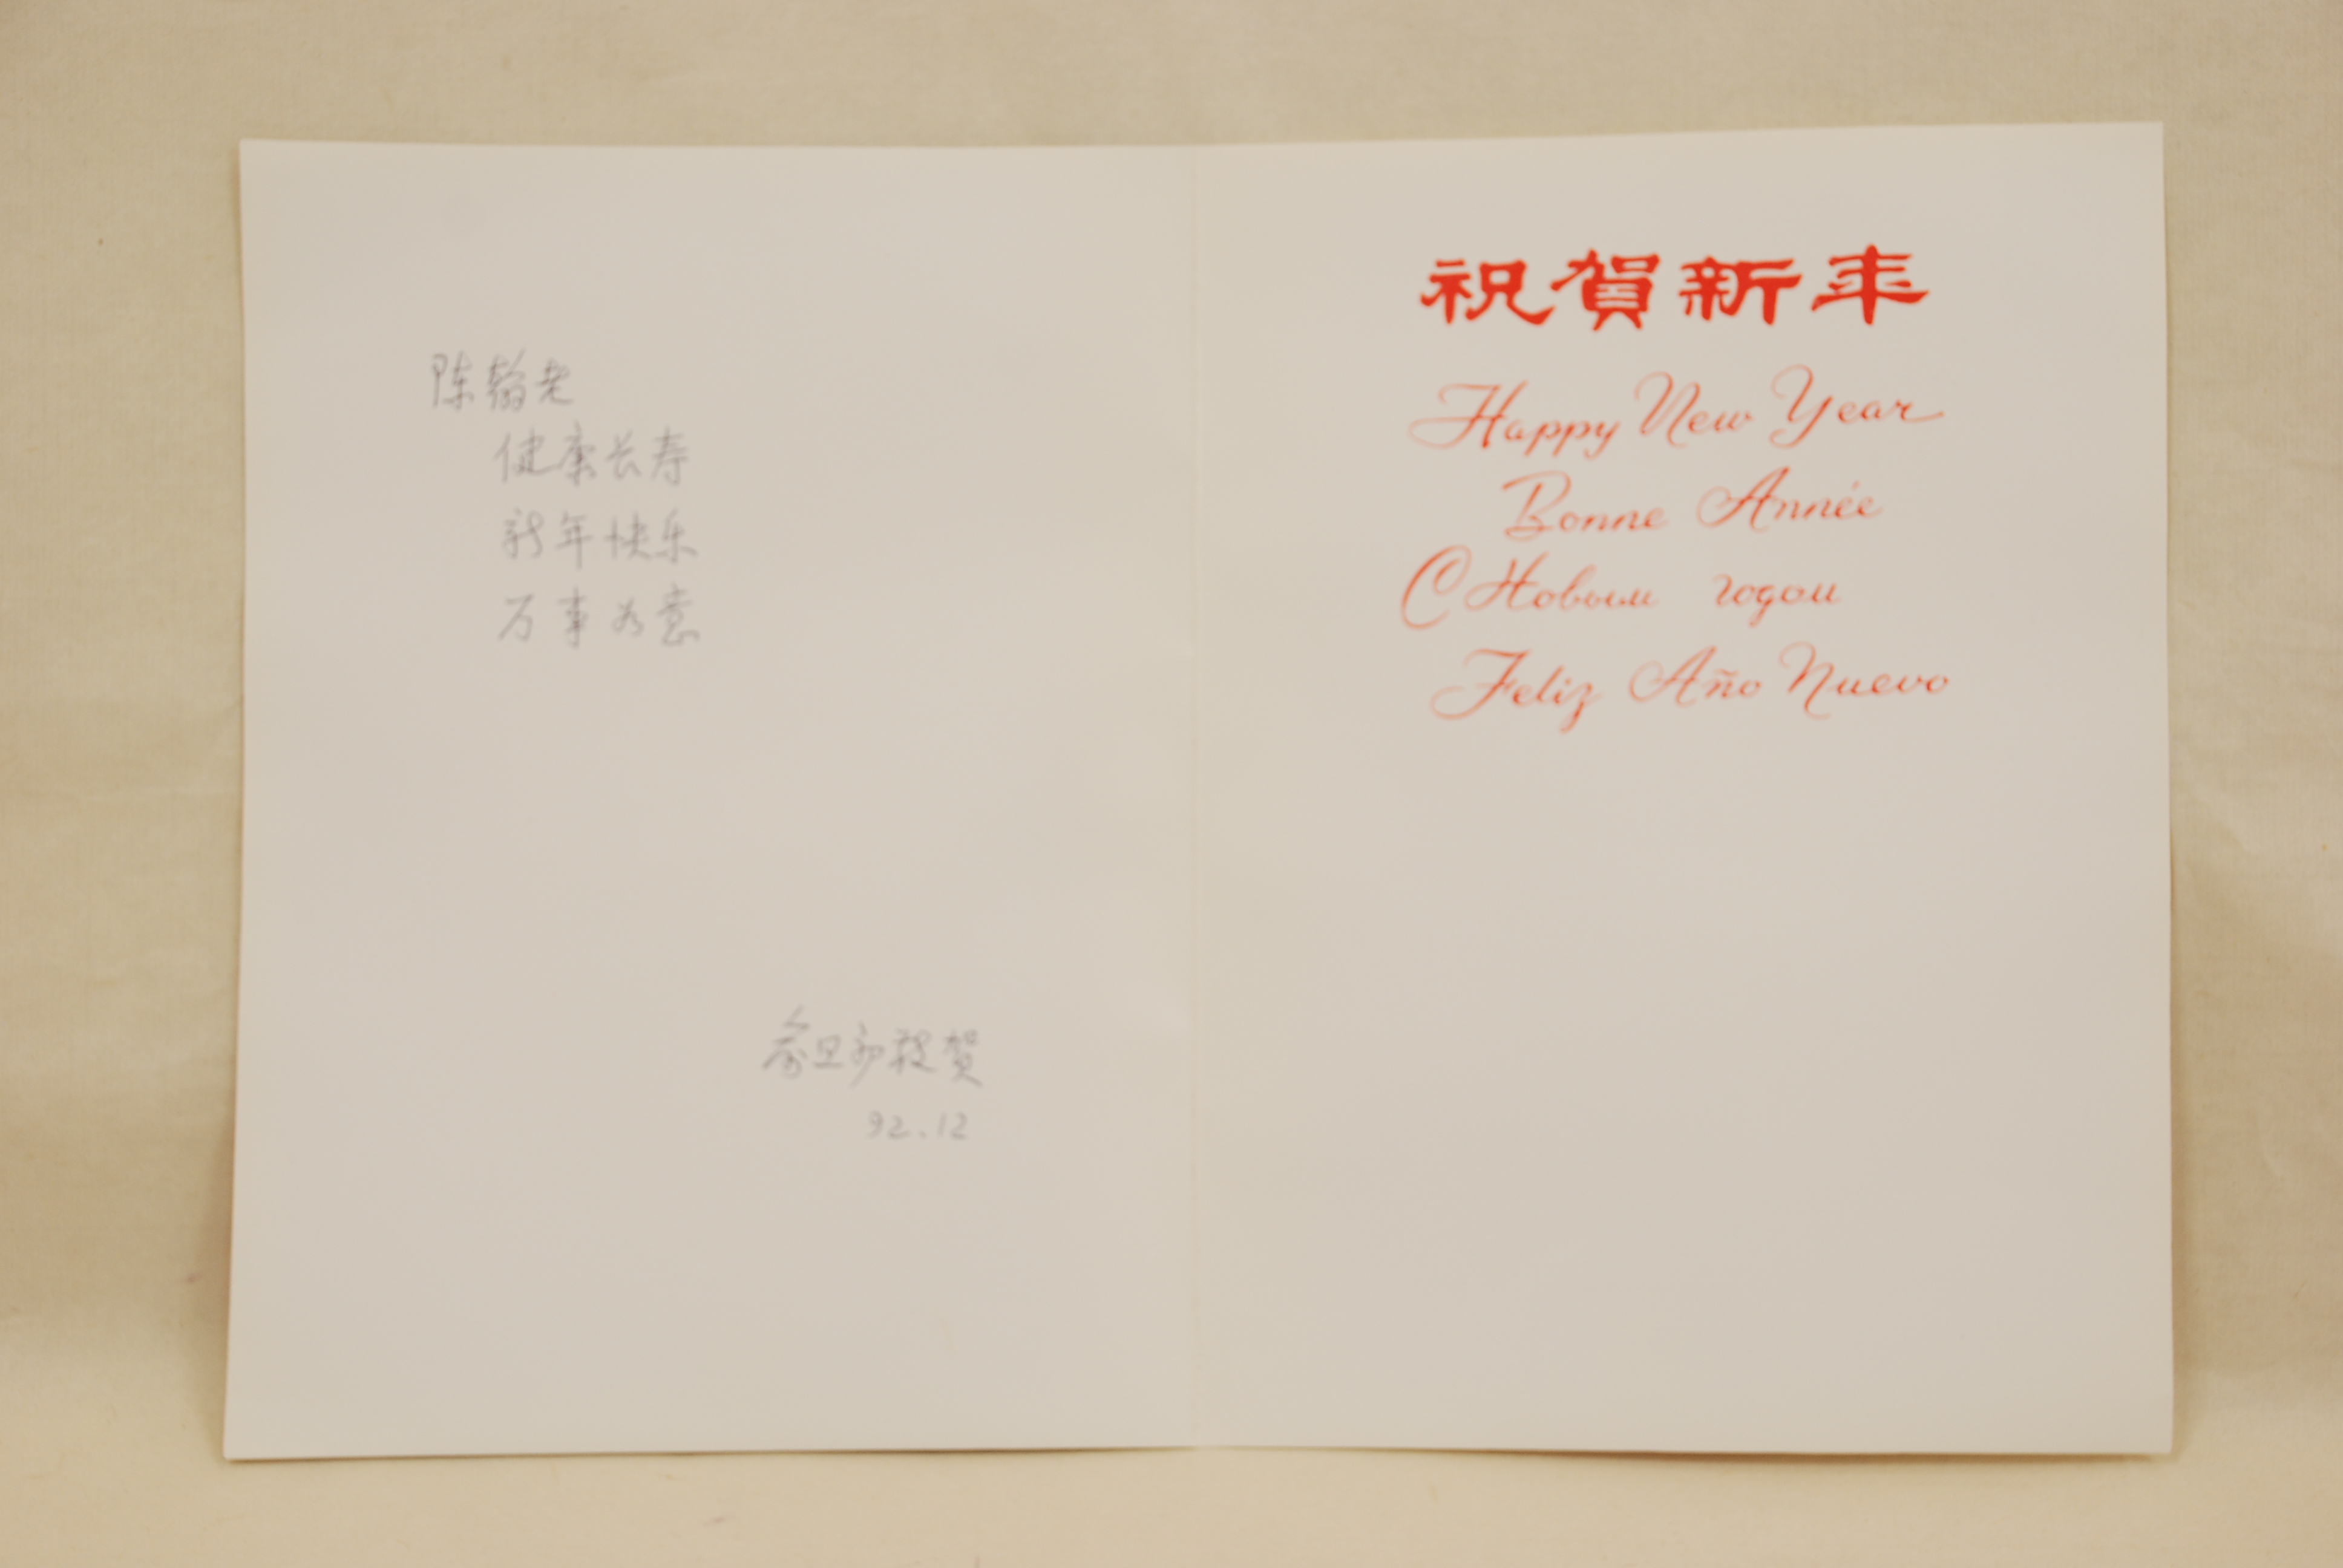 陈翰老
健康长寿
新年快乐
万事如意
俞旦初敬贺
92.12
祝賀新年
Happy New Year
Bonne Année
С Новым годом
Feliz Año Nuevo